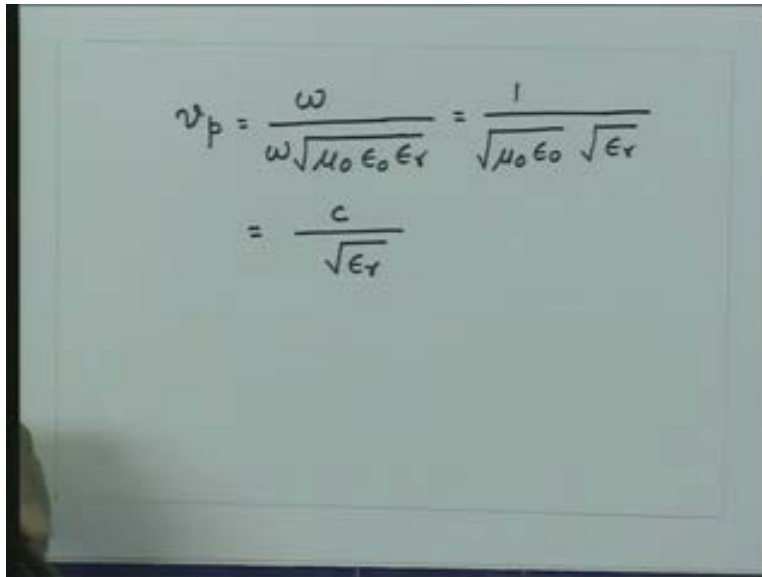 v_p = ω / (ω√(μ₀ ε₀ εᵣ)) = 1 / (√(μ₀ ε₀) √εᵣ)
= c / √εᵣ